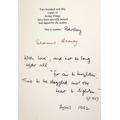 Two hundred and fifty
copies of
Seeing Things
have been specially bound
and signed by the author
This is number
Seamus Heaney
With love, and not so long
after all
"for air to brighten,
Time to be dazzled and the
heart to lighten"
April 1992